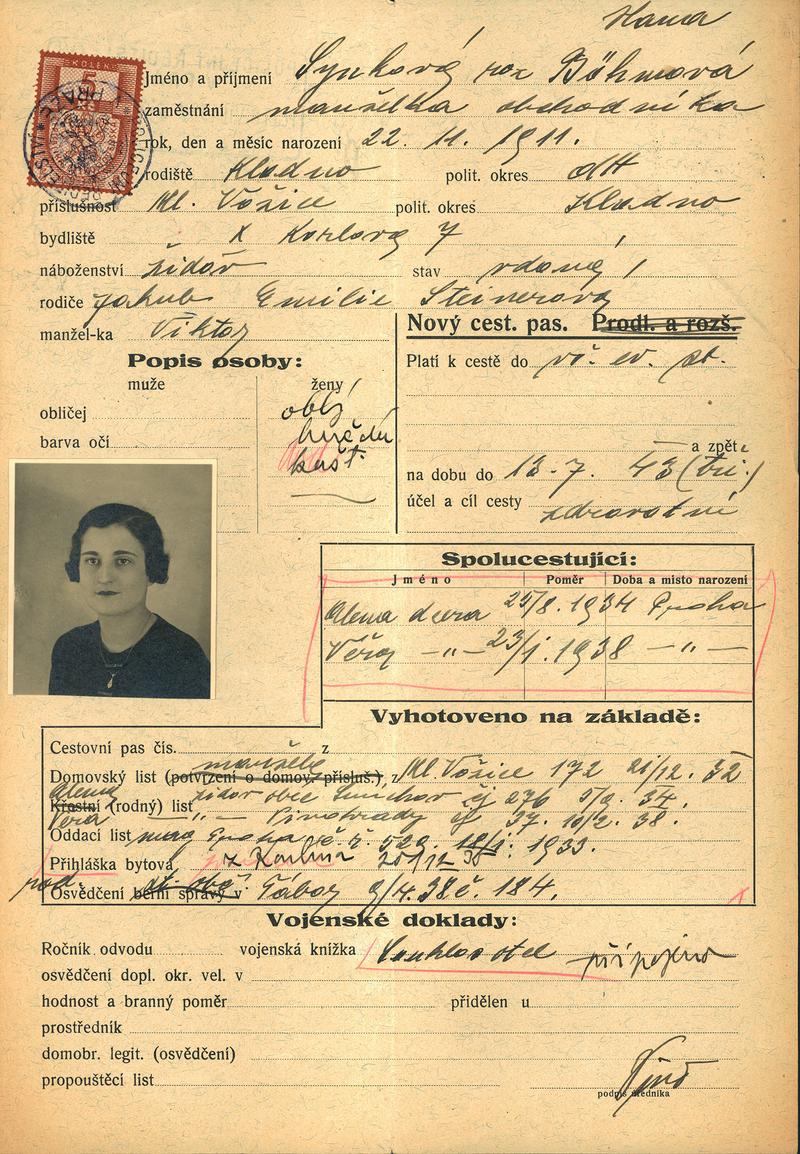 Hana
KOLEK
5
Jméno a příjmení Synková roz Böhmová
zaměstnání manželka obchodníka
rok, den a měsíc narození 22. 11. 1911.
rodiště Kladno polit. okres
příslušnost Ml. Vožice polit. okres Kladno
bydliště X Kozlova 7
náboženství židov stav vdaná
rodiče Jakub Emilie Steinerová
manžel-ka Viktor
Nový cest. pas. Prodl. a rozš.
Popis osoby:
muže ženy
obličej obl.
barva očí hnědé
kašt.
Platí k cestě do vš. ev. st.
a zpět
na dobu do 13-7. 43 (tři.)
účel a cíl cesty zdravotní
Spolucestující:
Jméno Poměr Doba a misto narození
Alena dcera 25/8. 1934 Praha
Věra -"- 23/1. 1938 -"-
Vyhotoveno na základě:
Cestovní pas čís. z
manžela
Domovský list (potvrzení o domov. přísluš.), z Ml. Vožice 172 21/12. 32
Alena
Křestní (rodný) list židov obce Smíchov čj 276 5/9. 34.
Věra -"- Vinohrady čj 37. 10/2. 38.
Oddací list mag Praha č. ř. 529. 18/1. 1933.
Přihláška bytová 38
Osvědčení berní správy v Tábor 9/4.38 č. 184.
Vojenské doklady:
Ročník odvodu vojenská kniżka Souhlas otce připojeno
osvědčení dopl. okr. vel. v
hodnost a branný poměr přidělen u
prostředník
domobr. legit. (osvědčení)
propouštěcí list
podpis úředníka